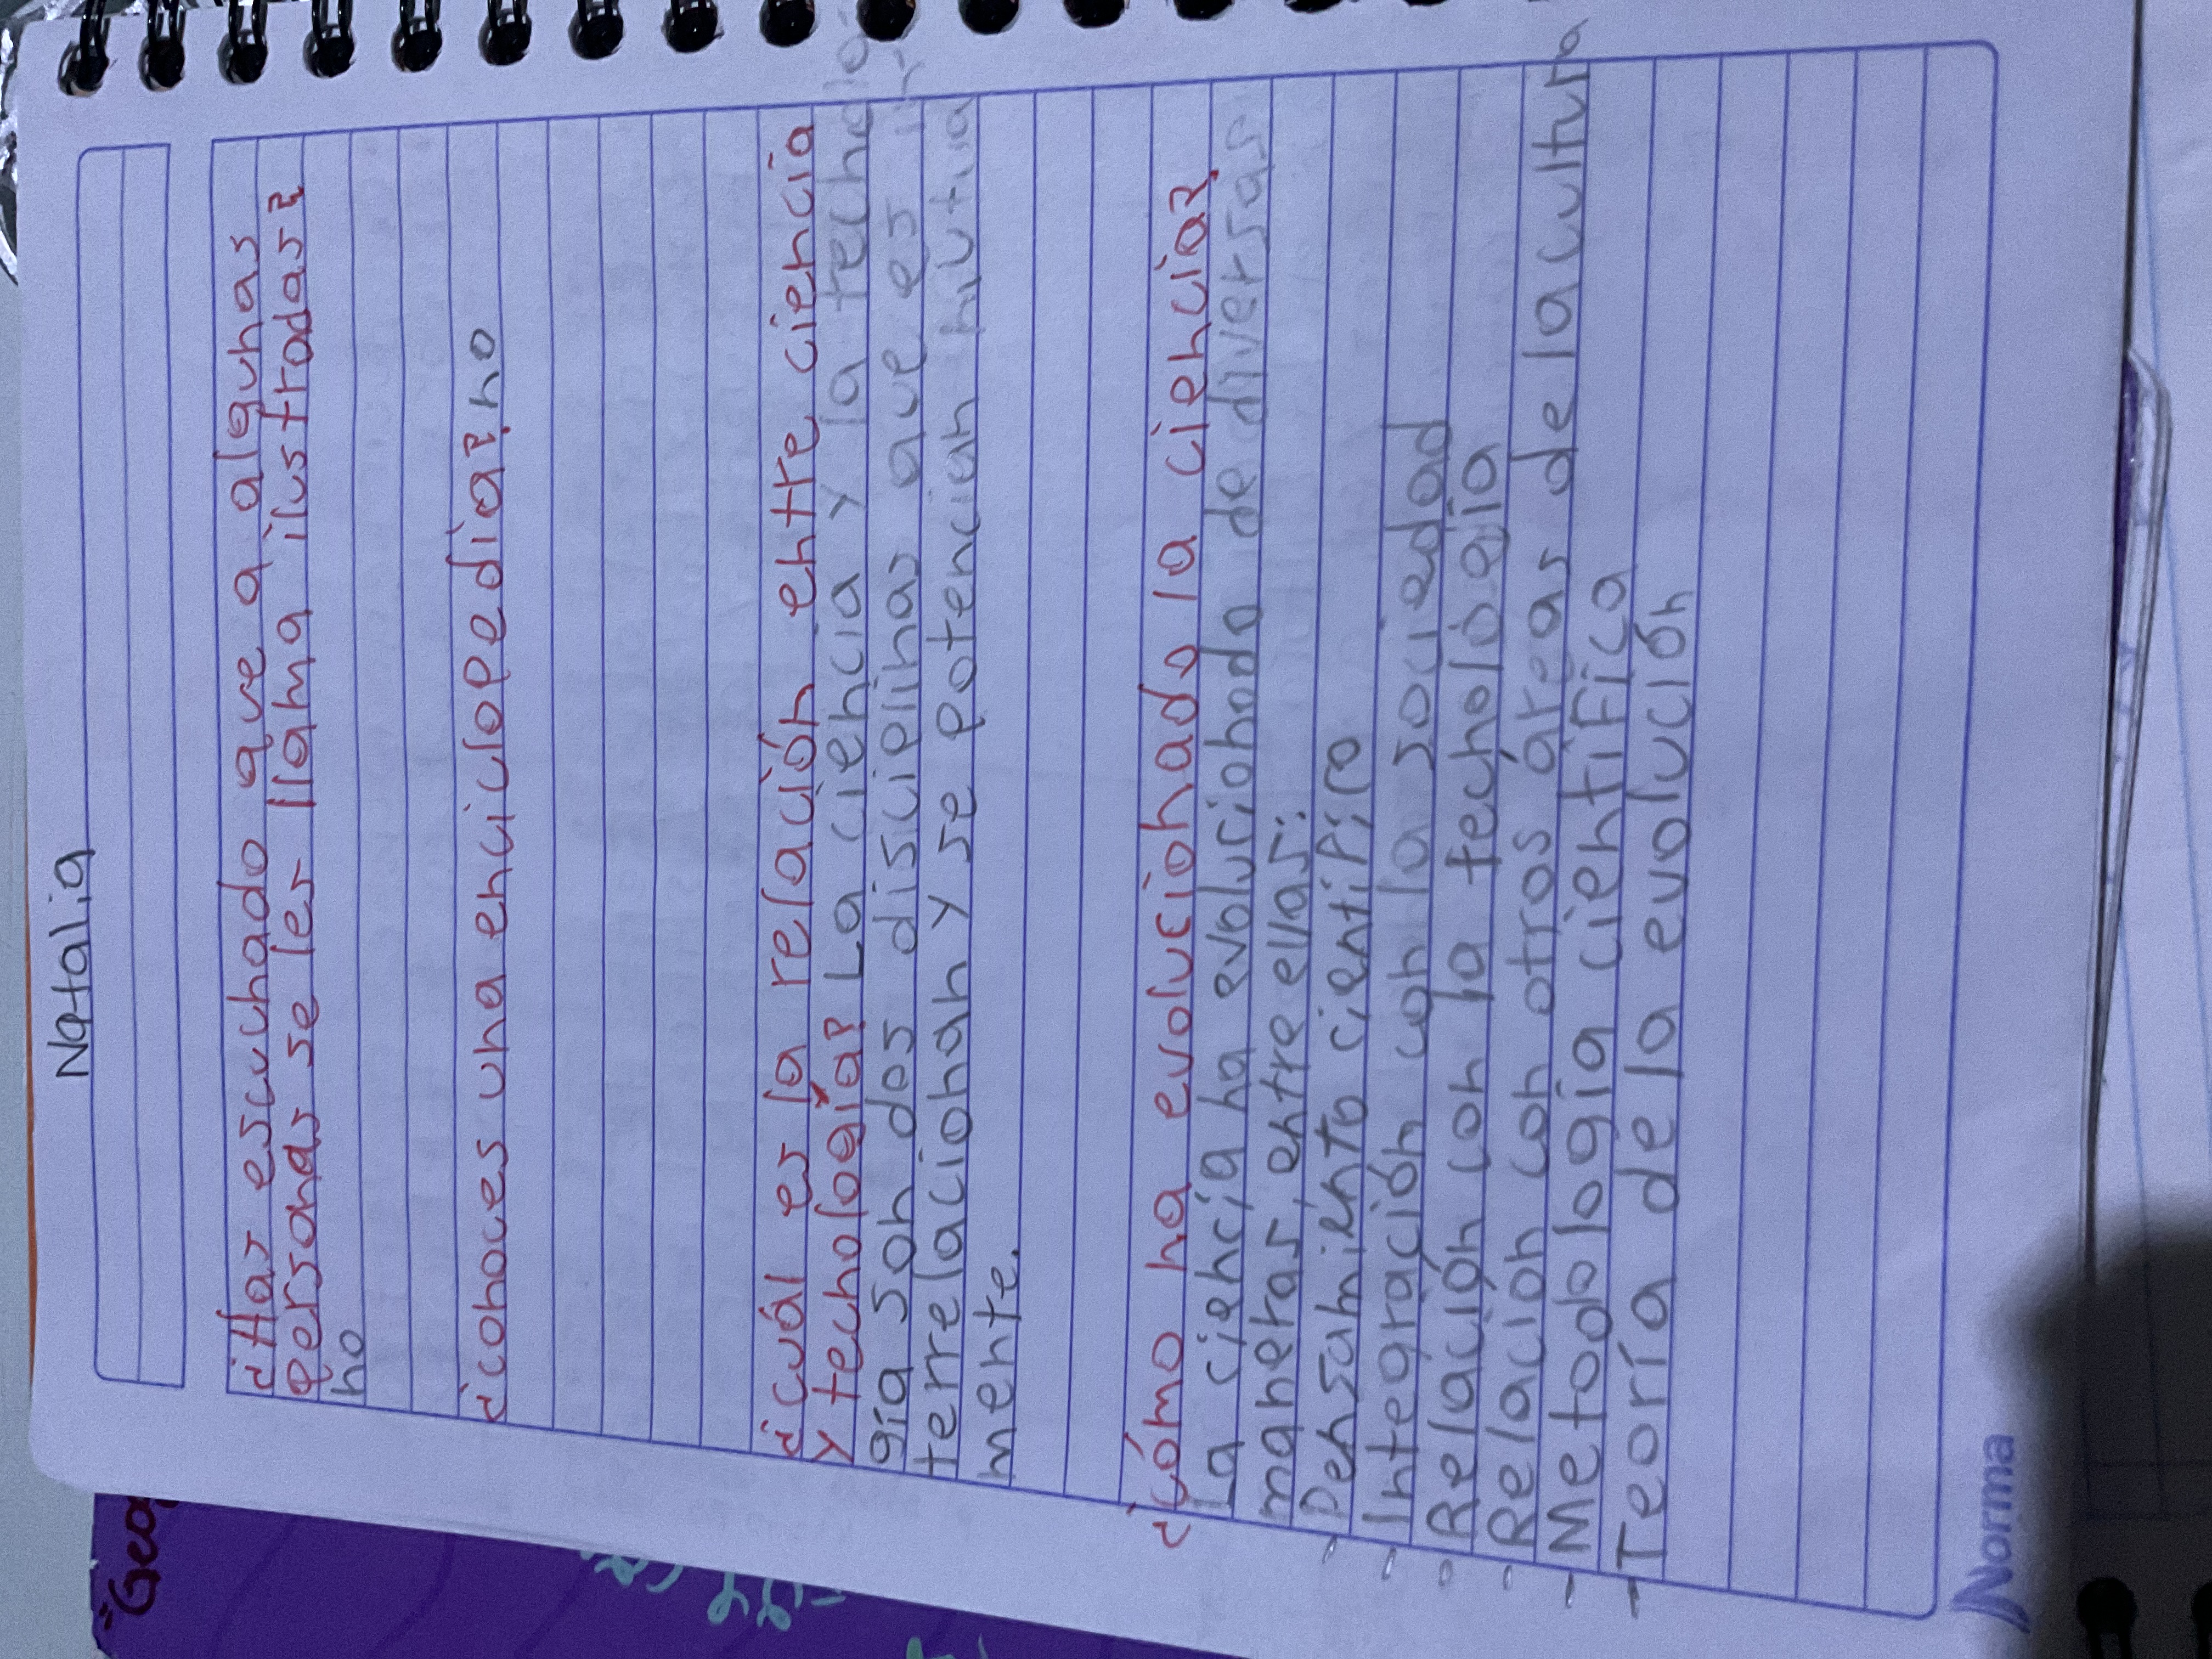 Natalia
¿Has escuchado que a algunas
personas se les llama ilustradas?
no
¿conoces una enciclopedia? no
¿cuál es la relación entre ciencia
y tecnología? La ciencia y la tecnolo
gía son dos disciplinas que es in-
terrelacionan y se potencian mutua
mente.
¿cómo ha evolucionado la ciencia?
La ciencia ha evolucionado de diversas
maneras, entre ellas:
- Pensamiento científico
- Integración con la sociedad
- Relación con la tecnología
- Relacion con otros áreas de la cultura
- Metodologia cientifica
- Teoría de la evolución
Norma
"Geo